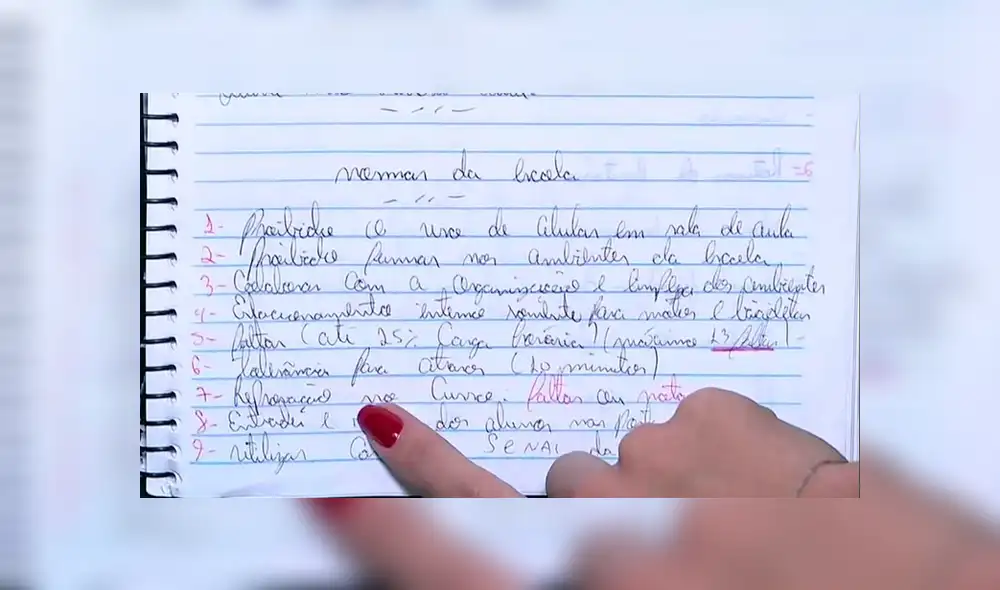 normas da Escola
1- Proibido o uso de Celular em sala de aula
2- Proibido fumar nos ambientes da Escola
3- Colaborar com a organização e limpeza dos ambientes
4- Estacionamento interno somente para motos e bicicletas
5- faltas (até 25% Carga horária) (máximo 13 faltas)
6- Tolerância para atrasos (10 minutos)
7- Reprovação no Curso: faltas ou nota
8- Entrada e dos alunos nas
9- utilizar SENAI da